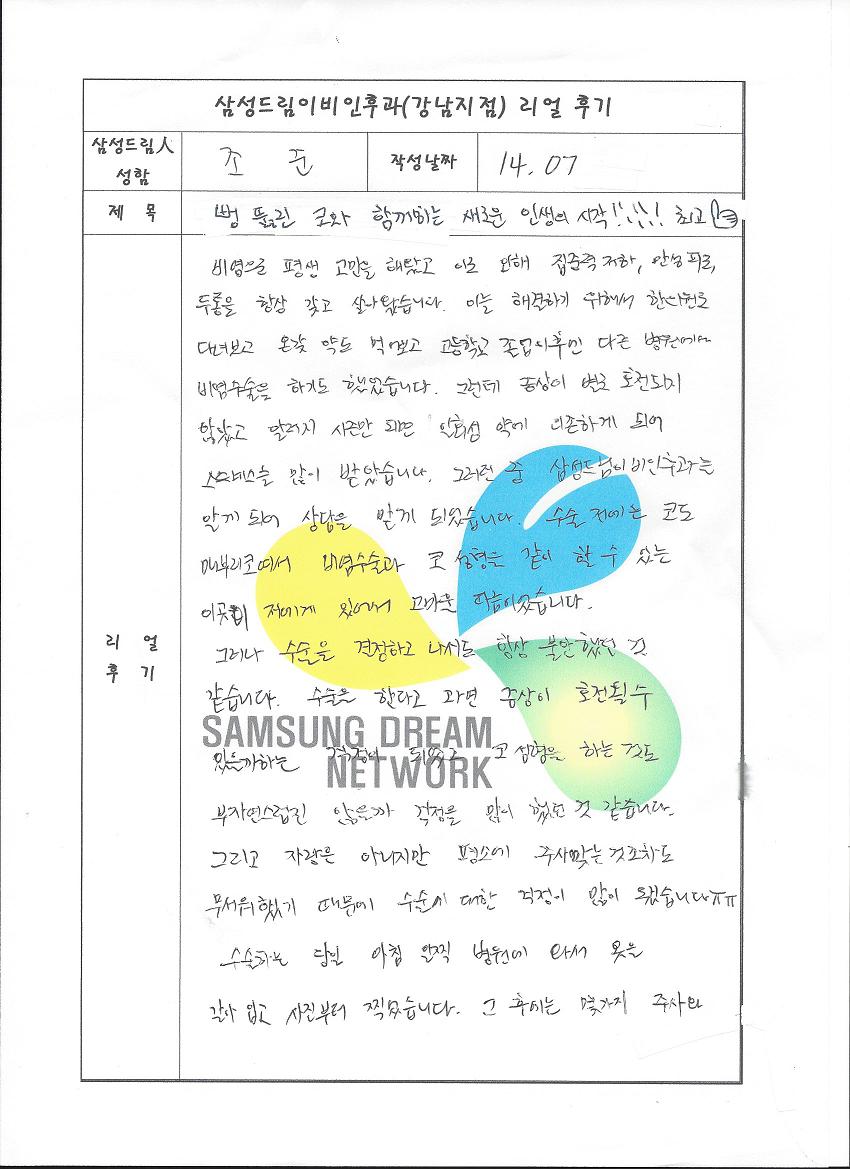 삼성드림이비인후과(강남지점) 리얼 후기
삼성드림人
성함
조 준
작성날짜
14.07
제 목
뻥 뚫린 코와 함께하는 새로운 인생의 시작!!!!! 최고
비염으로 평생 고민을 해왔고 이로 인해 집중력 저하, 만성 피로,
두통을 항상 갖고 살아왔습니다. 이를 해결하기 위해서 한의원도
다녀보고 온갖 약도 먹어보고 고등학교 졸업이후엔 다른 병원에서
비염수술을 하기도 했었습니다. 그런데 증상이 별로 호전되지
않았고 알러지 시즌만 되면 약에 의존하게 되어
스트레스를 많이 받았습니다. 그러던 중 삼성드림이비인후과를
알게 되어 상담을 받게 되었습니다. 수술 전에는 코도
매부리코여서 비염수술과 코 성형을 같이 할 수 있는
이곳이 저에게 있어서 고마운 마음이었습니다.
그러나 수술을 결정하고 나서도 항상 불안했던 것
같습니다. 수술을 한다고 과연 증상이 호전될 수
있을까하는 걱정이 되었고 코 성형을 하는 것도
부자연스럽진 않을까 걱정을 많이 했던 것 같습니다.
그리고 자랑은 아니지만 평소에 주사맞는것조차도
무서워했기 때문에 수술에 대한 걱정이 많이 됐습니다ㅠㅠ
수술하는 당일 아침 일찍 병원에 와서 옷을
갈아 입고 사진부터 찍었습니다. 그 후에는 몇가지 주사와
리 얼
후 기
SAMSUNG DREAM
NETWORK